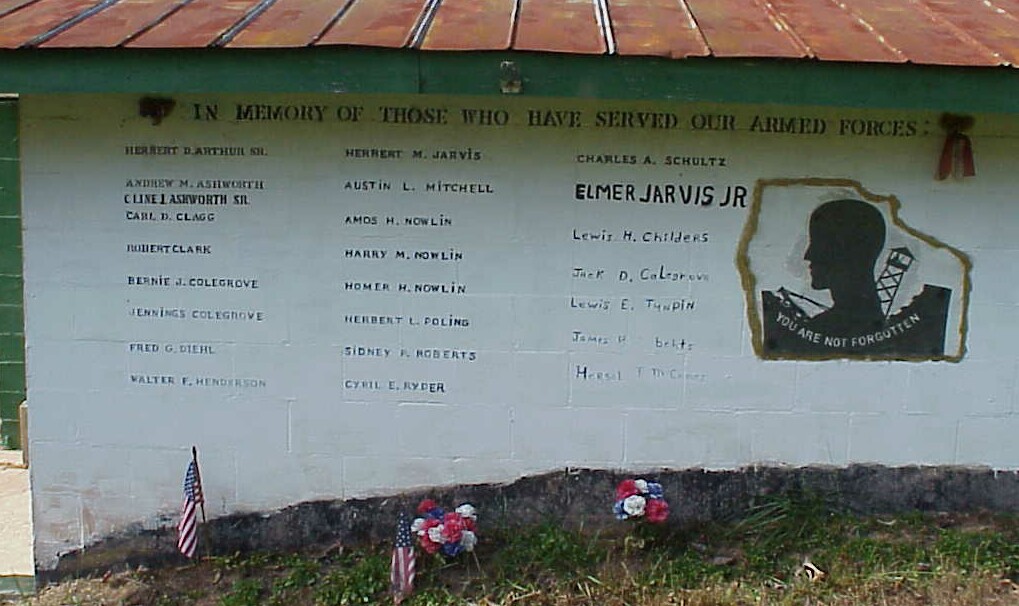 IN MEMORY OF THOSE WHO HAVE SERVED OUR ARMED FORCES:
HERBERT D. ARTHUR SR.
ANDREW M. ASHWORTH
CLINE J. ASHWORTH SR.
CARL D. CLAGG
ROBERT CLARK
BERNIE J. COLEGROVE
JENNINGS COLEGROVE
FRED G. DIEHL
WALTER F. HENDERSON
HERBERT M. JARVIS
AUSTIN L. MITCHELL
AMOS H. NOWLIN
HARRY M. NOWLIN
HOMER H. NOWLIN
HERBERT L. POLING
SIDNEY P. ROBERTS
CYRIL E. RYDER
CHARLES A. SCHULTZ
ELMER JARVIS JR
Lewis H. Childers
Jack D. Colegrove
Lewis E. Turpin
James
YOU ARE NOT FORGOTTEN